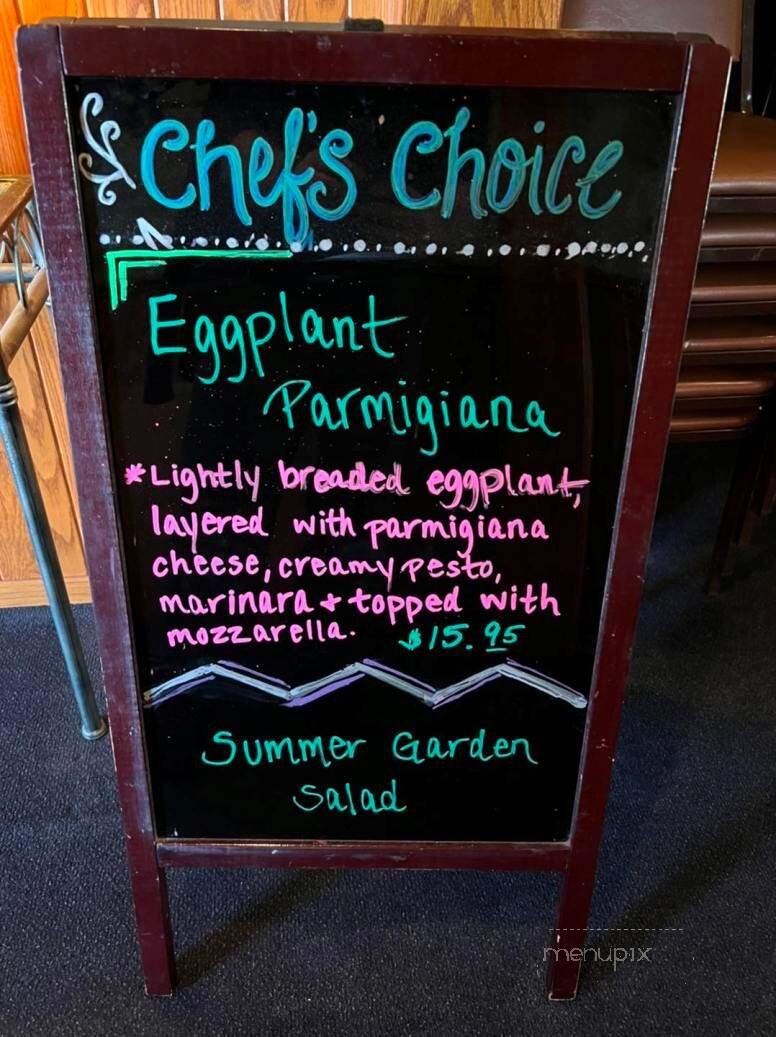 Chef's Choice
Eggplant
Parmigiana
*Lightly breaded eggplant,
layered with parmigiana
cheese, creamy pesto,
marinara + topped with
mozzarella. $15.95
Summer Garden
Salad
menupix